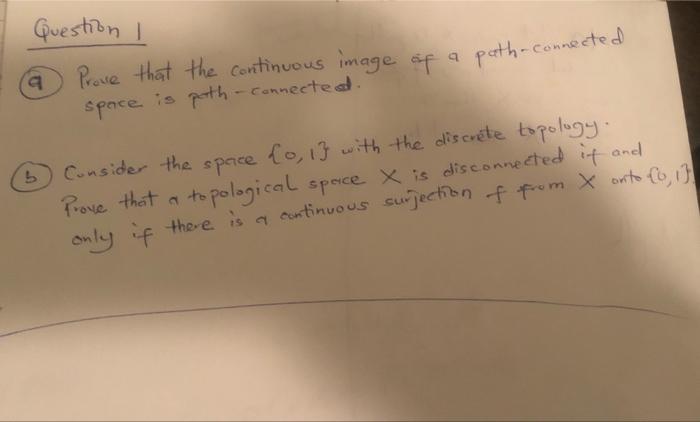 Question 1
(a) Prove that the continuous image of a path-connected
space is path-connected.
(b) Consider the space {0,1} with the discrete topology.
Prove that a topological space X is disconnected if and
only if there is a continuous surjection f from X onto {0,1}